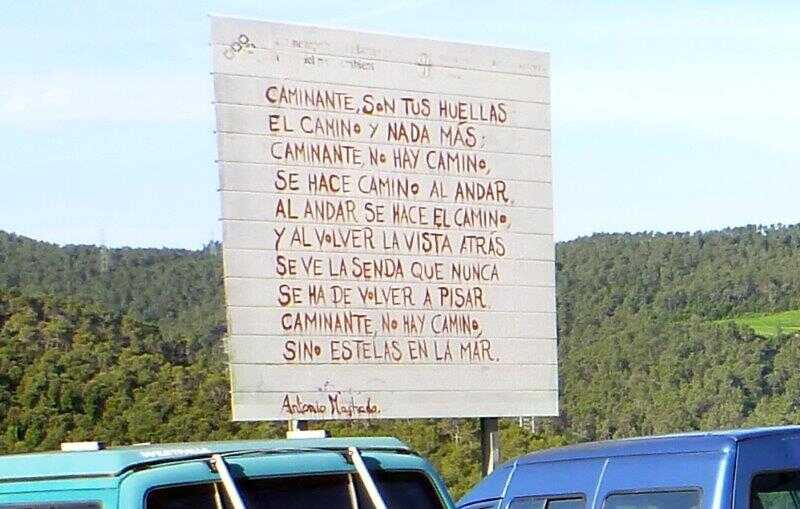 CAMINANTE, SON TUS HUELLAS
EL CAMINO Y NADA MÁS;
CAMINANTE, NO HAY CAMINO,
SE HACE CAMINO AL ANDAR.
AL ANDAR SE HACE EL CAMINO,
Y AL VOLVER LA VISTA ATRÁS
SE VE LA SENDA QUE NUNCA
SE HA DE VOLVER A PISAR.
CAMINANTE, NO HAY CAMINO,
SINO ESTELAS EN LA MAR.
Antonio Machado.